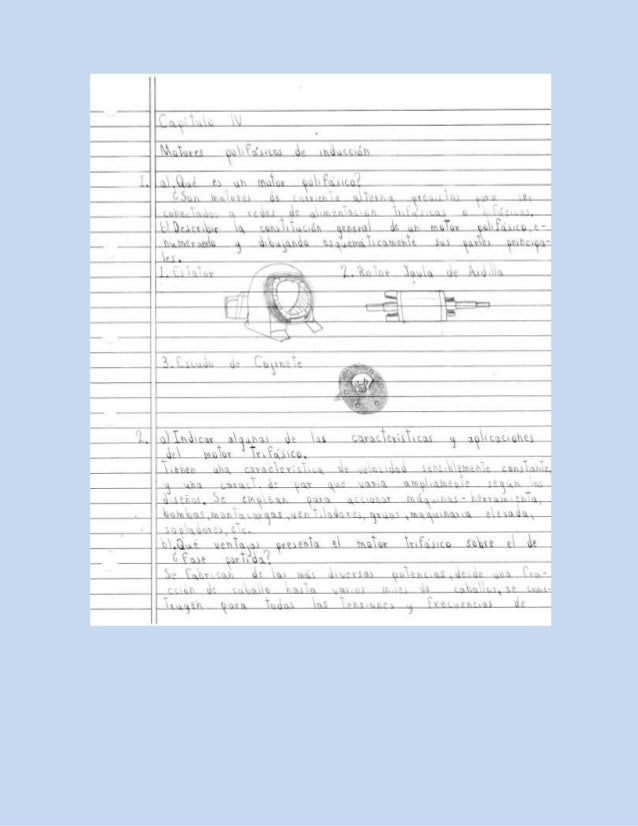 Capítulo IV
Motores polifásicos de inducción
1. a) ¿Qué es un motor polifásico?
Son motores de corriente alterna previstos para ser
conectados a redes de alimentación trifásicas o bifásicas.
b) Describir la constitución general de un motor polifásico, e-
numerando y dibujando esquemáticamente sus partes principa-
les.
1. Estator 2. Rotor Jaula de Ardilla
3. Escudo de Cojinete
2. a) Indicar algunas de las características y aplicaciones
del motor trifásico.
Tienen una característica de velocidad sensiblemente constante,
y una caract. de par que varia ampliamente según los
diseños. Se emplean para accionar máquinas-herramienta,
bombas, montacargas, ventiladores, grúas, maquinaria elevada,
sopladores, etc.
b) ¿Qué ventajas presenta el motor trifásico sobre el de
Fase partida?
Se fabrican de las más diversas potencias, desde una fra-
cción de caballo hasta varios miles de caballos, se cons-
truyen para todas las tensiones y frecuencias de